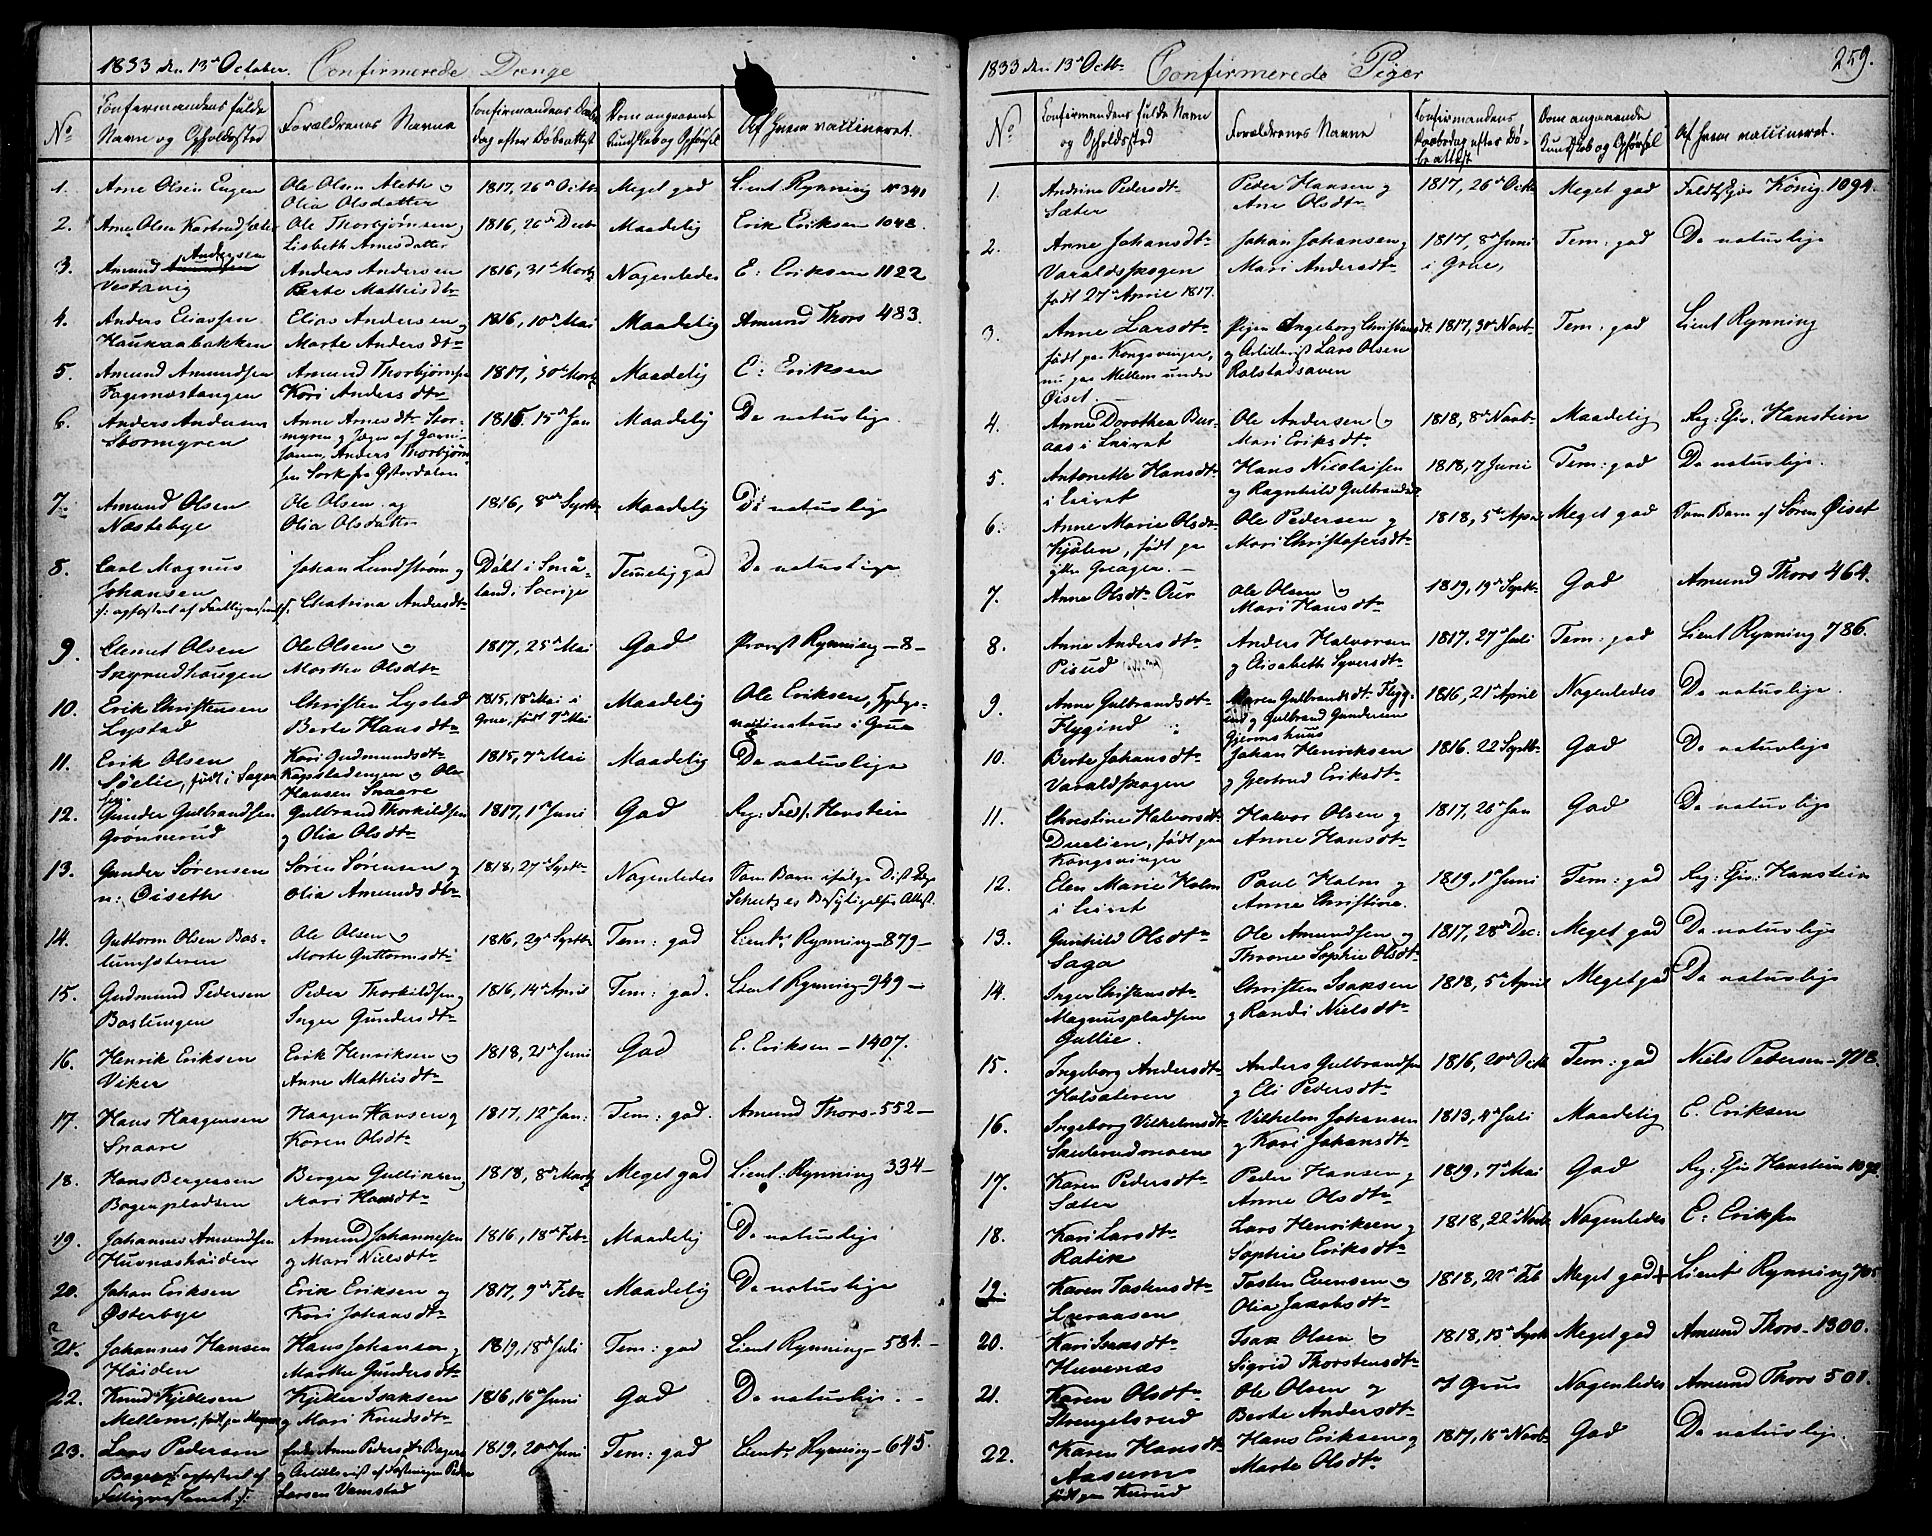 1833 den 13de October. Confirmerede Drenge
No
Confirmandens fulde Navn og Opholdssted
Forældrenes Navne
Confirmandens Daabsdag efter Døbeattest
Dom angaaende Kundskab og Opførsel
Af hvem vaccineret.
1. Arne Olsen Eugen
Ole Olsen Aletté og
Olia Olsdatter
1817, 26de Octbr
Meget god
Lieut Rynning No 340
2. Arne Olsen
Ole Thorbjørnsen og
Lisbeth Arnesdatter
1816, 26de Decbr
Maadelig
Erik Eriksen 1048.
3. Amund Andersen
Vestavig
Anders Andersen
Berte Mathisdtr
1816, 31de Marts
Nogenledes
E: Eriksen 1122
4. Anders Eliassen
Haukaabakken
Elias Andersen og
Marte Andersdtr
1816, 10de Mai
Maadelig
Amund Thors 483.
5. Amund Amundsen
Fagernæstangen
Amund Thorbjørnsen
Kari Andersdtr
1817, 30de Marts
Maadelig
E: Eriksen
6. Anders Andersen
Stormyren
Anne Arnesdtr Stormyren
og Jæger af
Anders Thorbjørnsen
fra Østerdalen
1816. 15de Jan
Maadelig
Do naturlige.
7. Amund Olsen
Næstebye
Ole Olsen og
Olia Olsdatter
1816, 8de Septbr
Maadelig
Do naturlige
8. Carl Magnus
Johansen
Johan Lundstrøm og
Chatrina Andersdtr
Døbt i Små-
land i Sverige
Temelig god
Do naturlige
9. Clemet Olsen
Skyrudhaugen
Ole Olsen og
Marthe Olsdtr
1817, 25de Mai
God
Provst Rynning - 8 -
10. Erik Christensen
Lystad
Christen Lystad
Berte Hansdtr
1815, 18de Mai i
Grue, født 7de Mai
Maadelig
Ole Eriksen, Hjelpevaccinateur i Grue
11. Erik Olsen
Søelie, født i Sagen
Kari Gudmundsdtr
og Ole
Hansen Snaare
1815, 7de Mai
Maadelig
Do naturlige
12. Gunder Gulbrandsen
Grønnerud
Gulbrand Thorkildsen
og Olia Olsdtr
1817, 1ste Juni
God
Reg: Feldsk. Hanstein
13. Gunder Sørensen
n: Øiseth
Søren Sørensen og
Olia Amundsdtr
1818, 27de Septbr
Nogenledes
Som Barn ifølge Dist. Læge
Schutzes Besigtigelses Attest.
14. Guttorm Olsen Bas-
tumsæteren
Ole Olsen og
Marte Guttormsdtr
1816, 29de Septbr
Tem: god
Lieutn Rynning - 879 -
15. Gudmund Pedersen
Bastungen
Peder Thorkildsen og
Inger Gundersdtr
1816, 14de April
Tem: god.
Lieut Rynning - 949 -
16. Henrik Eriksen
Viker
Erik Henriksen og
Anne Mathisdtr
1818, 21de Juni
God
E. Eriksen - 1407.
17. Hans Haagensen
Snaare
Haagen Hansen og
Karen Olsdtr
1817, 12te Jan:
Tem: god.
Amund Thors - 552 -
18. Hans Bergersen
Bogerpladsen
Berger Gulliksen og
Mari Hansdtr
1818, 8de Marts
Meget god
Lieut: Rynning 334 -
19. Johannes Amundsen
Huvnæshøiden
Amund Johannesen
og Mari Nielsdtr
1816, 18de Febr
Maadelig
Do naturlige
20. Johan Eriksen
Østerbye
Erik Eriksen og
Kari Johansdtr
1817, 9de Febr
Maadelig
Do naturlige
21. Johannes Hansen
Høiden
Hans Johansen og
Marthe Gundersdtr
1819, 18de Juli
Tem: god
Lieut Rynning - 584. -
22. Knud Kjeldsen
Mellem,
Isaksen
og Mari Knudsdtr
1816, 16de Juni
God
Do naturlige -
23. Lars Pedersen
Enke Anne Pedersdtr
og Artillerist af Fæstningen Peder
Larsen Vamstad
1819, 20de Juni
Tem: god
Lieutn Rynning - 645.
1833 den 13de Octbr Confirmerede Piger
259.
No
Confirmandens fulde Navn og Opholdssted
Forældrenes Navne
Confirmandens Daabsdag efter Døbeattest
Dom angaaende Kundskab og Opførsel
Af hvem vaccineret.
1. Andrine Pedersdtr
Sæter
Peder Hansen og
Ane Olsdtr
1817, 26de Octbr
Meget god
König 1094.
2. Anne Johansdtr
Varaldskogen
født 27de Aprile 1817.
Johan Johansen og
Mari Andersdtr
1817, 8de Juni
i Grue,
Tem: god
Do naturlige
3. Anne Larsdtr
født paa Kongsvinger,
nu paa Mellem under
Øiset
Pigen Ingeborg Christiansdtr
og Artillerist Lars Olsen
Rolstadsaven
1817, 30de Novbr
Tem: god
Lieut Rynning
4. Anne Dorothea Bur-
aas i Leiret
Ole Andersen og
Mari Eriksdtr
1818, 8de Novbr
Maadelig
Reg: Chir: Hanstein
5. Antonette Hansdtr
i Leiret
Hans Nicolaisen
og Ragnhild Gulbrandsd
1818, 7 Juni
Tem: god
Do naturlige.
6. Anne Marie Olsdtr
Kjølen, født paa
Ole Pedersen og
Mari Christofersdtr
1818, 5te April
Meget god
Som Barn af Søren Øiset
7. Anne Olsdtr Ouv
Ole Olsen og
Mari Hansdtr
1819, 19de Septbr
God
Amund Thors 464.
8. Anne Andersdtr
Pisud
Anders Halvorsen
og Elisabeth Syversdtr
1817, 27de Juli
Tem: god
Lieut Rynning 786.
9. Anne Gulbrandsdtr
Flygind
Maren Gulbrandsdtr Flyg-
ind og Gulbrand Gundersen
Gjermshuus
1816, 21de April
Nogenledes
Do naturlige.
10. Berte Johansdtr
Varaldskogen
Johan Henriksen
og Gjertrud Eriksdtr
1816. 22 Septbr
God
Do naturlige
11. Christine Halvorsdtr
født paa
Kongsvinger
Halvor Olsen og
Anne Hansdtr
1817, 26de Jan
God
Do naturlige
12. Elen Marie Holm
i Leiret
Paul Holm og
Anne Christine.
1819, 1ste Juni
Tem: god
Reg: Chir: Hanstein
13. Gunhild Olsdtr
Saga
Ole Amundsen og
Throne Sophie Olsdtr
1817, 28de Dec:
Meget god
Do naturlige
14. Inger Christensdtr
Magnuspladsen
Gullie.
Christen Isaksen
og Randi Nielsdtr
1818, 5te April
Meget god
Do naturlige
15. Ingeborg Andersdtr
Kalsæteren
Anders Gulbrandsen
og Eli Pedersdtr
1816, 20de Octbr
Tem: god
Niels Petersen - 778.
16. Ingeborg Vilhelmsdtr
Vilhelm Johansen
og Kari Johansdtr
1813, 4de Juli
Maadelig
E. Eriksen
17. Karen Pedersdtr
Sæter
Peder Hansen og
Anne Olsdtr
1819, 7de Mai
God
Reg: Chir Hanstein 1092.
18. Kari Larsdtr
Ratik
Lars Henriksen og
Sophie Eriksdtr
1818, 22de Novbr
Nogenledes
E: Eriksen
19. Karen Tostensdtr
Leeraasen
Tosten Evensen og
Olia Jakobsdtr
1818, 22de Feb
Meget god +
Lieut Rynning 705
20. Kari Isaksdtr
Huvenæs
Isak Olsen og
Sigrid Thorstensdtr
1818, 13de Septbr
Meget god
Amund Thors - 1300.
21. Karen Olsdtr
Strengelsrud
Ole Olsen og
Berte Andersdtr
I Grue
Nogenledes
Amund Thors 501.
22. Karen Hansdtr
Aasum
født paa Kurud
Hans Eriksen og
Marte Olsdtr
1817, 16de Novbr
God
Do naturlige.